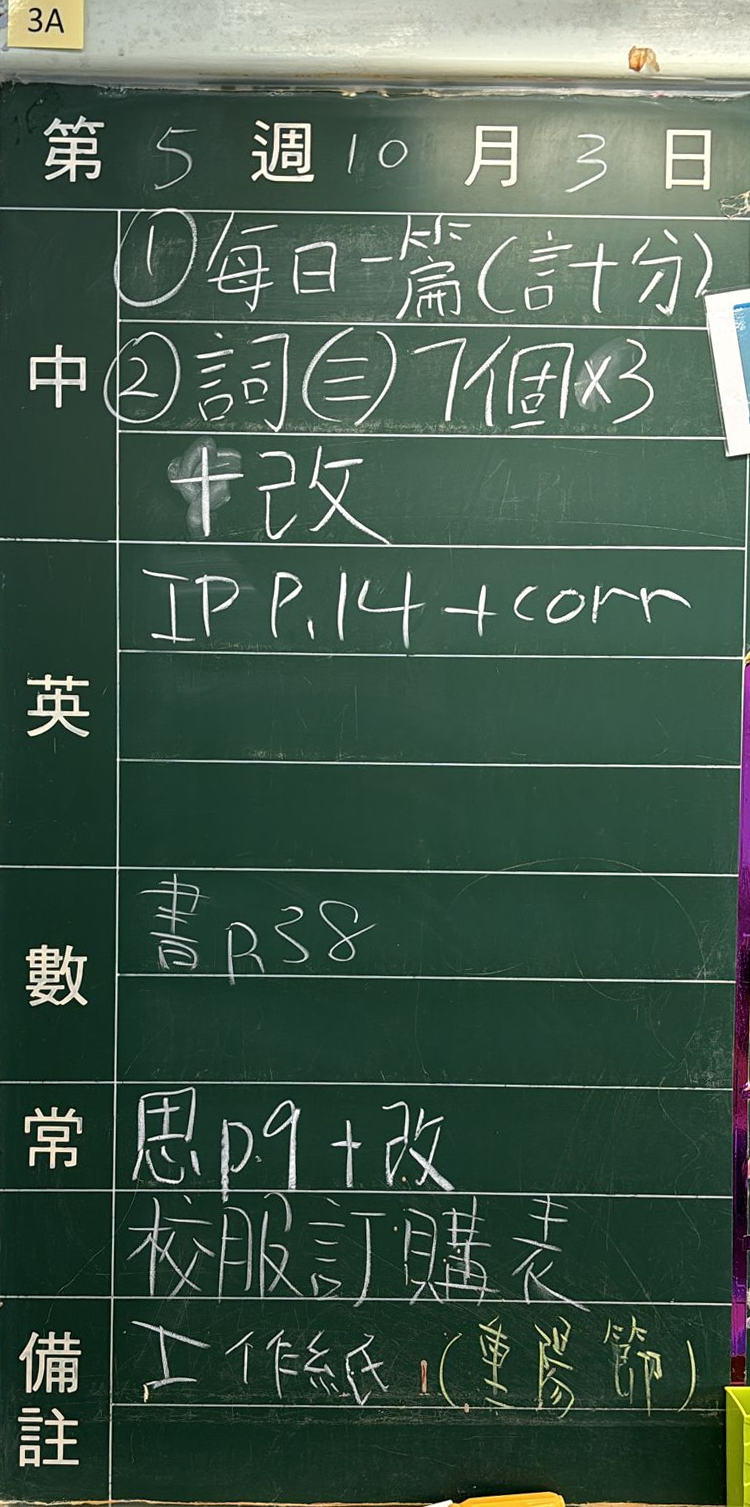 3A
第 5 週 10 月 3 日
中
①每日一篇(計十分)
②詞(三)7個×3
+改
英
IP P.14 + corr
數
書 P.38
常
思 p.9 + 改
校服訂購表
備註
工作紙 1 (重陽節)